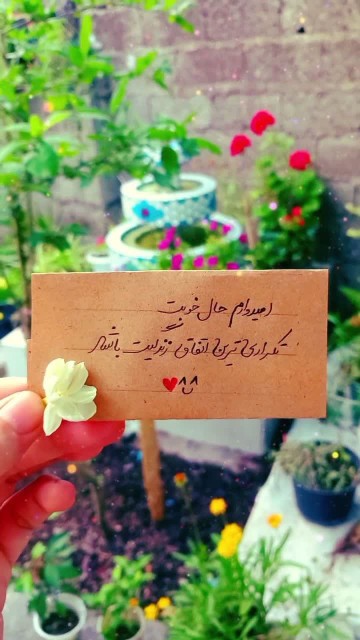 امیدوارم حال خوبت
تکراری ترین اتفاق زندگیت باشه
♥^^